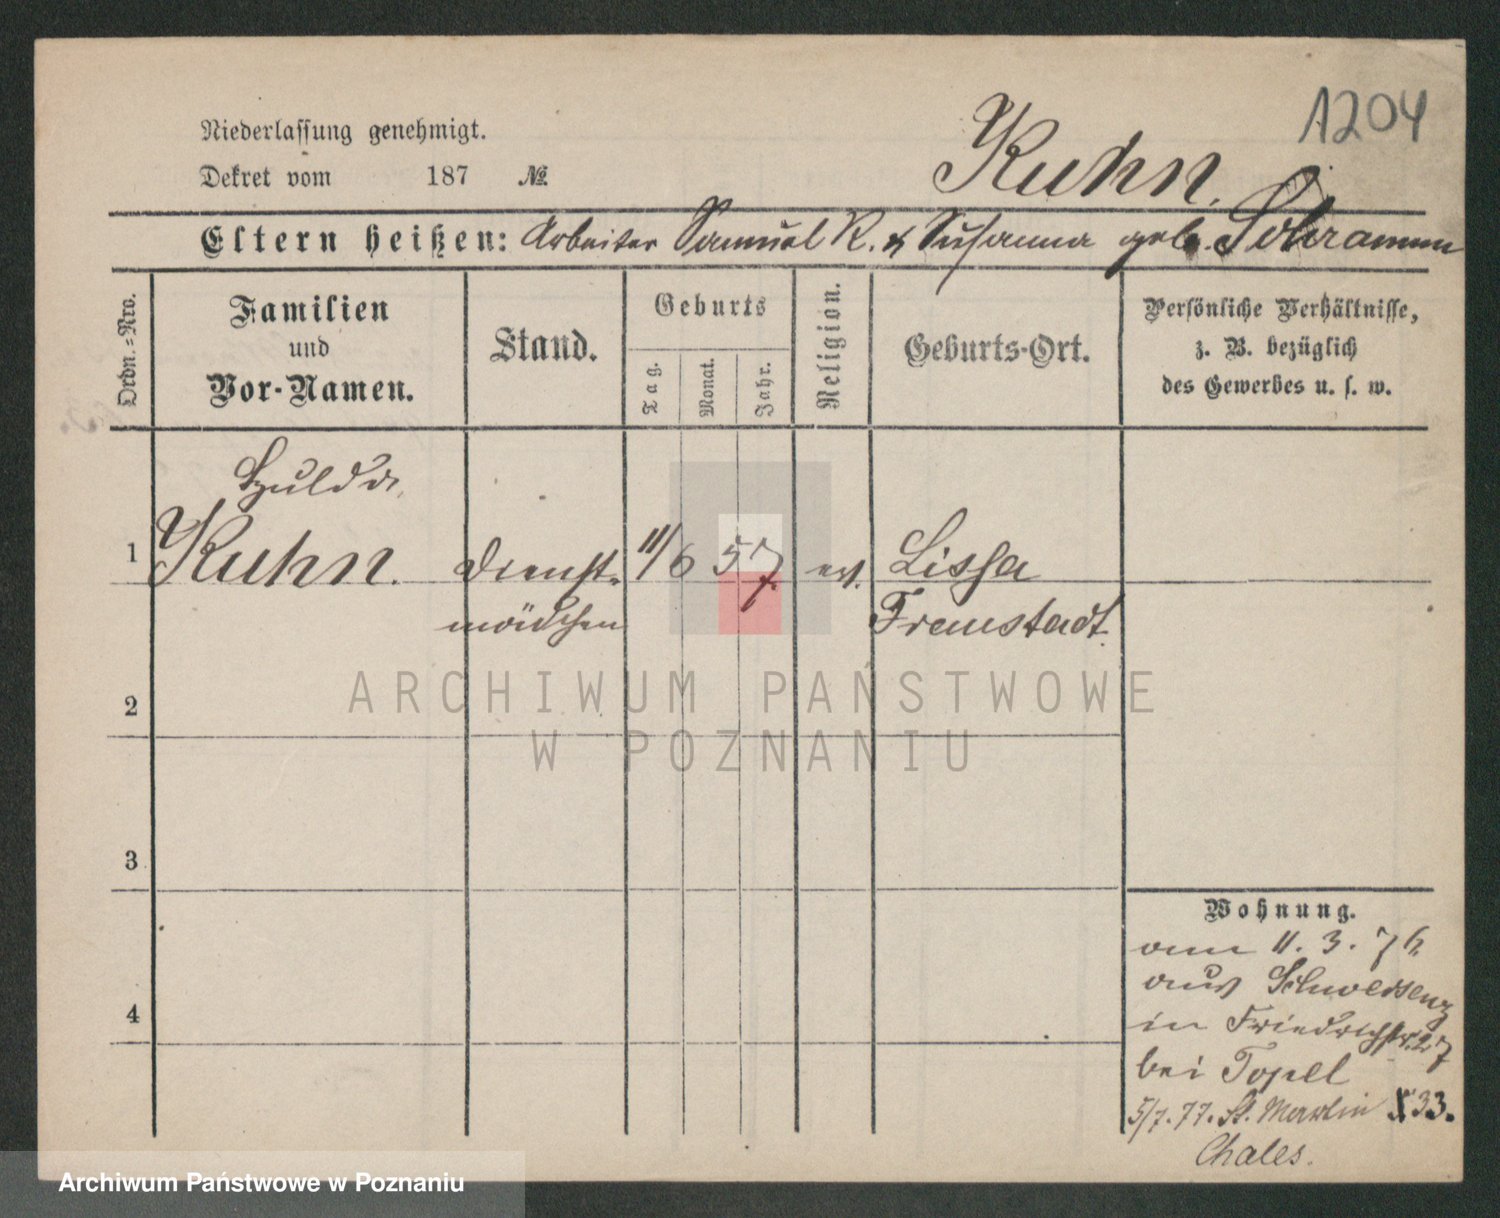 1204
Niederlassung genehmigt.
Dekret vom 187 №
Kuhn.
Eltern heißen: Arbeiter Samuel K. & Susanna geb. Schramm
Ordn.-Nro.
Familien
und
Vor-Namen.
Stand.
Geburts
Tag.
Monat.
Jahr.
Religion.
Geburts-Ort.
Persönliche Verhältnisse,
z. B. bezüglich
des Gewerbes u. s. w.
Hulda
1 Kuhn. Dienst- 11/6 57 ev. Lissa
mädchen Fraustadt.
2
3
4
Wohnung.
am 11. 3. 76
aus Schwersenz
in Friedrichstr. 27
bei Topell
5/7. 77. St. Martin 33.
Chales.
ARCHIWUM PAŃSTWOWE
W POZNANIU
Archiwum Państwowe w Poznaniu